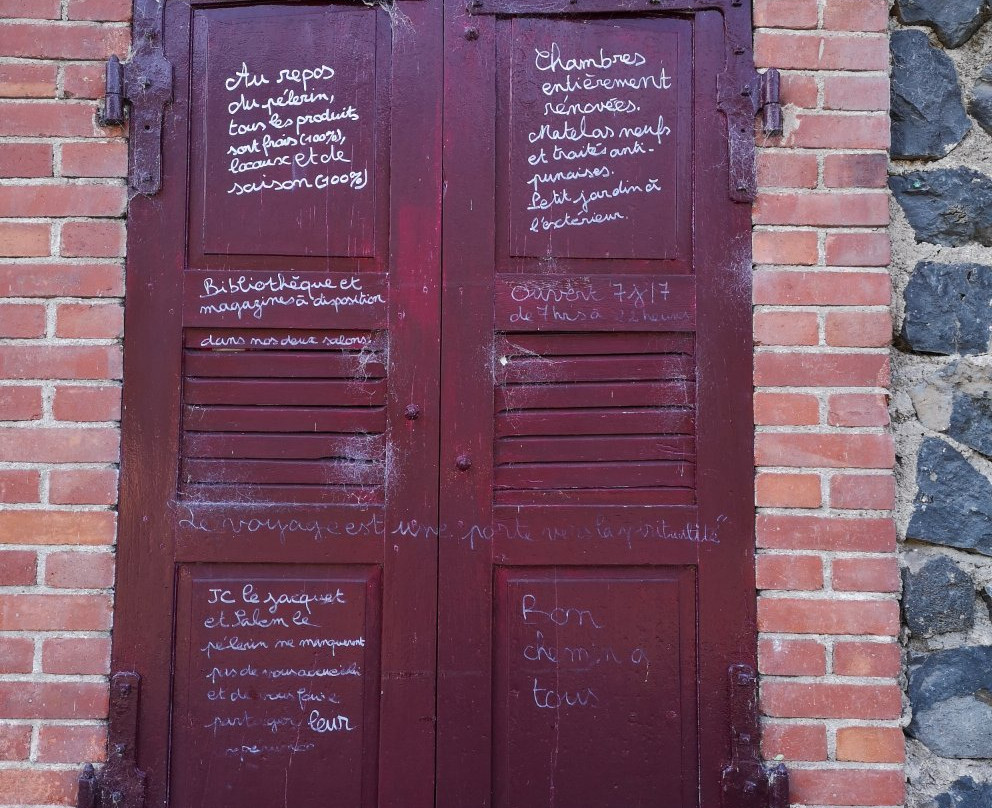 Au repos
du pélerin,
tous les produits
sont frais (100%),
locaux et de
saison (100%)
Chambres
entièrement
rénovées.
Matelas neufs
et traités anti-
punaises.
Petit jardin à
l'extérieur.
Bibliothèque et
magazines à disposition
dans nos deux salons.
Ouvert 7j/7
de 7hrs à 22 heures
Le voyage est une porte vers la spiritualité"
JC le jacquet
et Salem le
pélerin ne manqueront
pas de vous accueillir
et de vous faire
partager leur
Bon
chemin à
tous